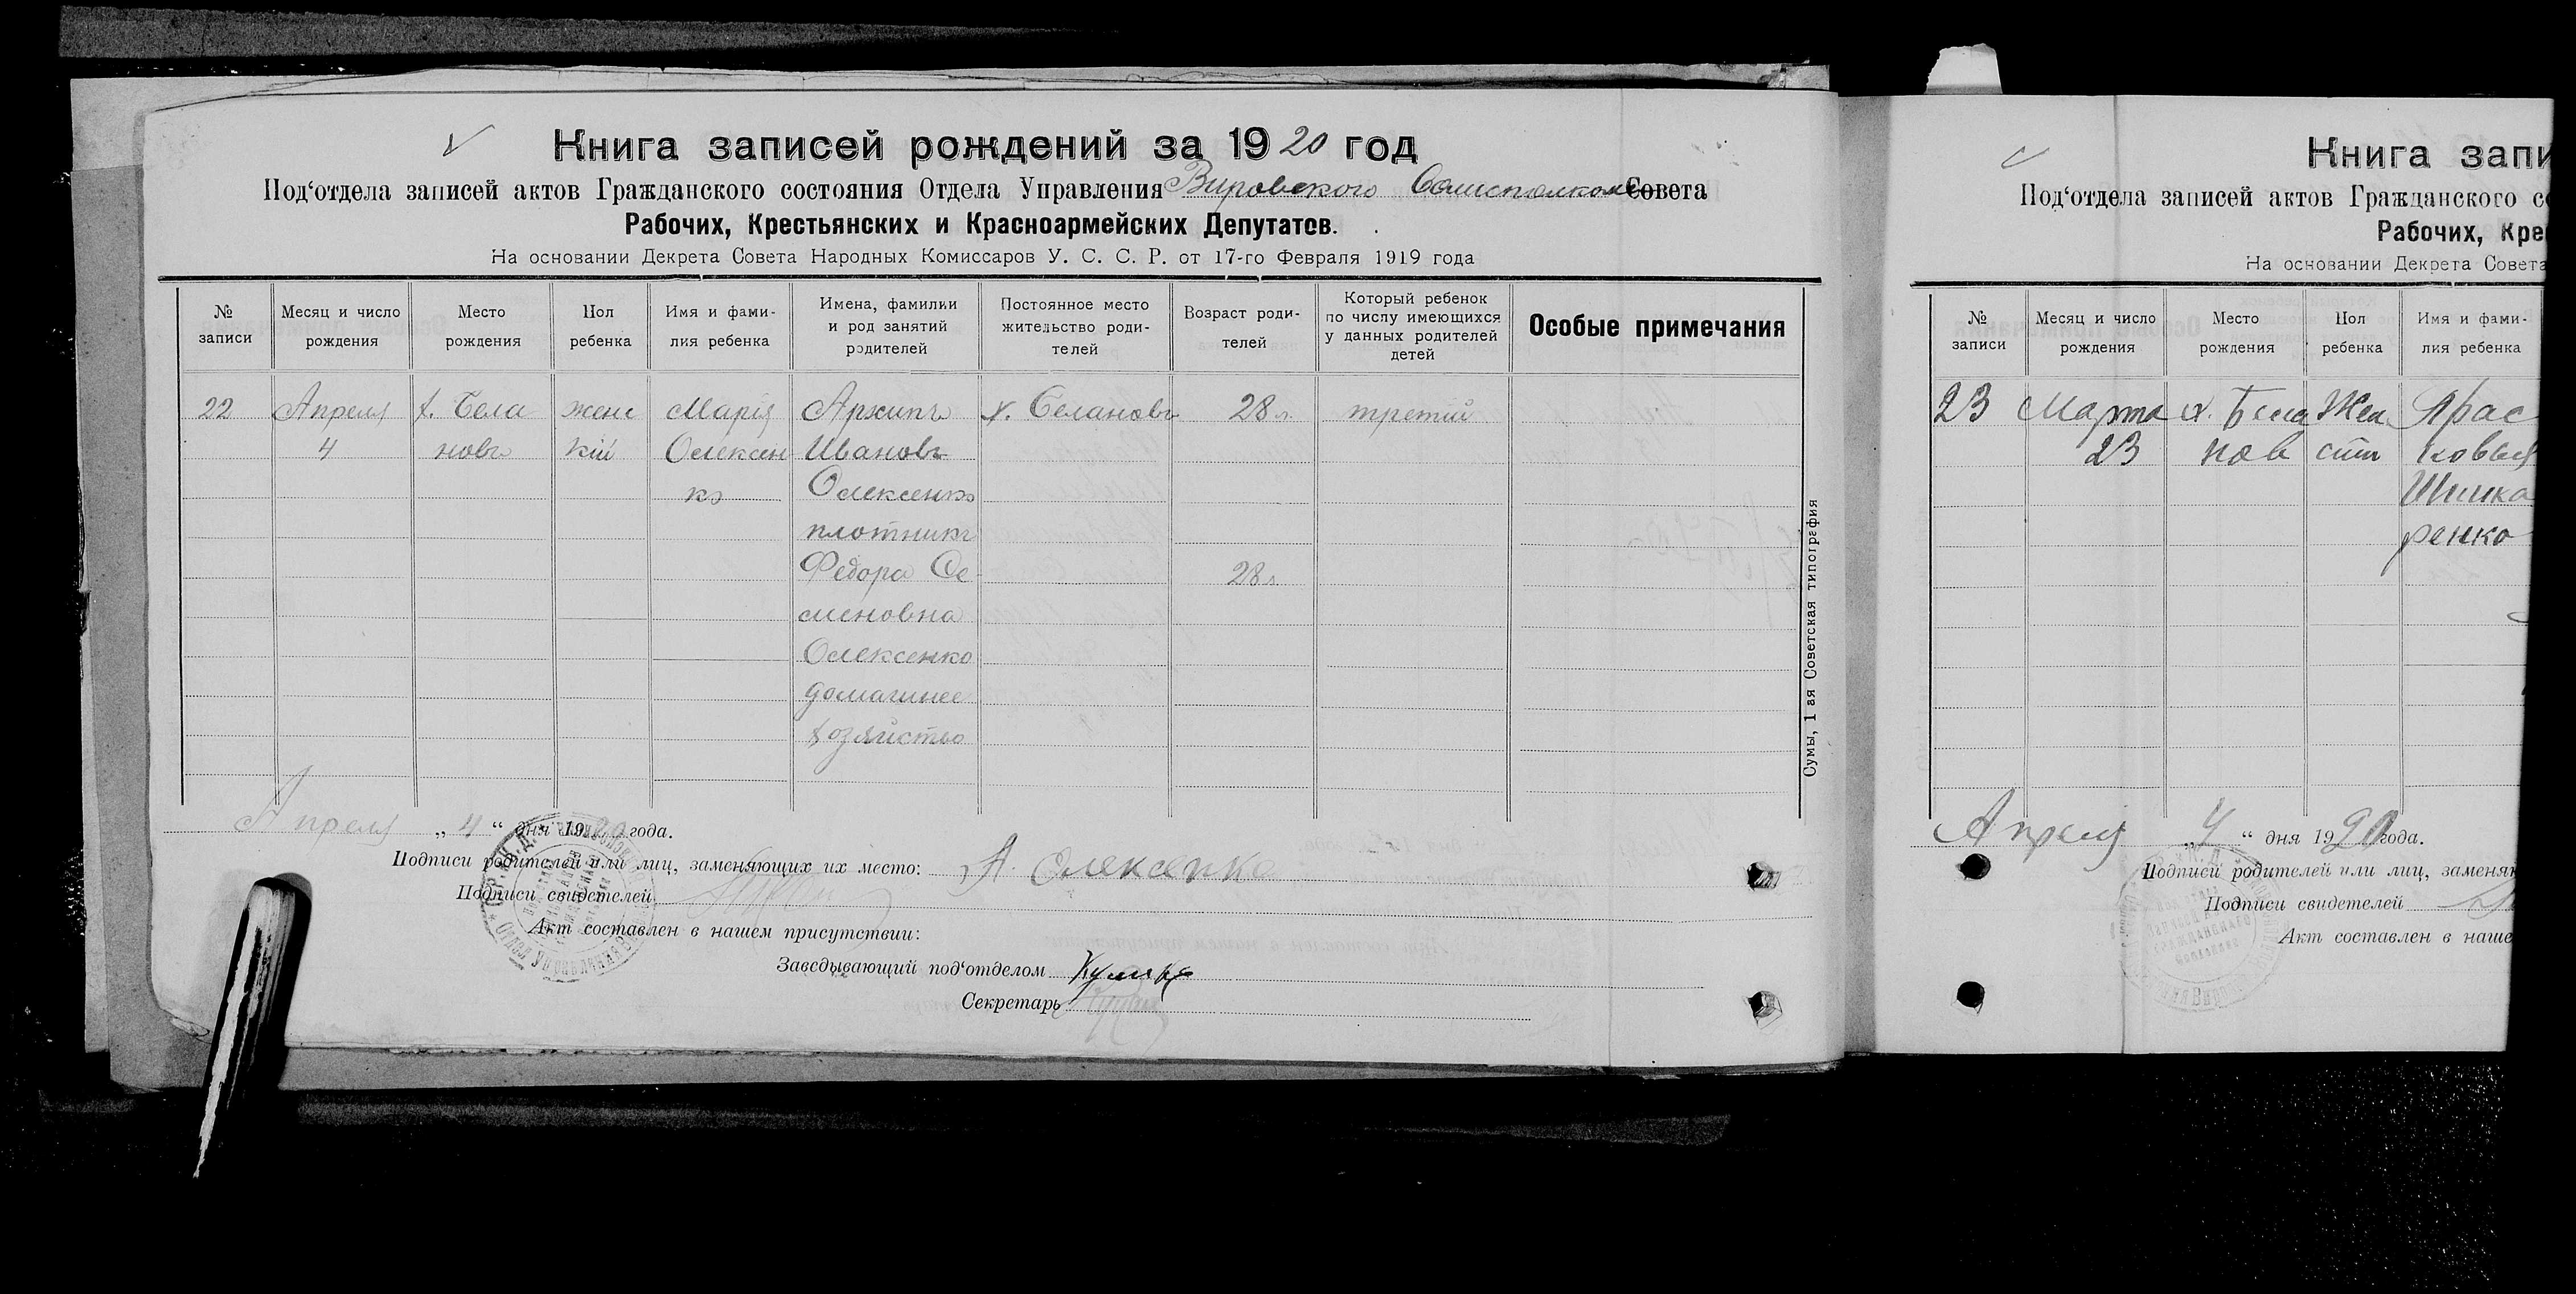 Книга записей рождений за 1920 год
Под'отдела записей актов Гражданского состояния Отдела Управления Вировского Волисполкома Совета
Рабочих, Крестьянских и Красноармейских Депутатов.
На основании Декрета Совета Народных Комиссаров У. С. С. Р. от 17-го Февраля 1919 года
№ записи
Месяц и число рождения
Место рождения
Пол ребенка
Имя и фами-
лия ребенка
Имена, фамилии
и род занятий
родителей
Постоянное место
жительство роди-
телей
Возраст роди-
телей
Который ребенок
по числу имеющихся
у данных родителей
детей
Особые примечания
22 Апреля х. Бела женс Марія Архипъ х. Белановъ 28 л. третий
4 новъ кій Олексен Ивановъ
ко Олексенко
плотникъ
Федора Се 28 л
меновна
Олексенко
домашнее
хозяйство
Апреля „4“ дня 1920 года.
Подписи родителей или лиц, заменяющих их место: А. Олексенко
Подписи свидетелей
Акт составлен в нашем присутствии:
Заведывающий под'отделом
Секретарь
Сумы, 1 ая Советская типография
Книга запи
Под'отдела записей актов Гражданского со
Рабочих, Кре
На основании Декрета Совета
№ записи
Месяц и число рождения
Место рождения
Пол ребенка
Имя и фами-
лия ребенка
23 Марта х. Бела Жен Прас
23 нов ский ковья
Шинка
ренко
Апреля „4“ дня 1920 года.
Подписи родителей или лиц, заменяю
Подписи свидетелей
Акт составлен в наше